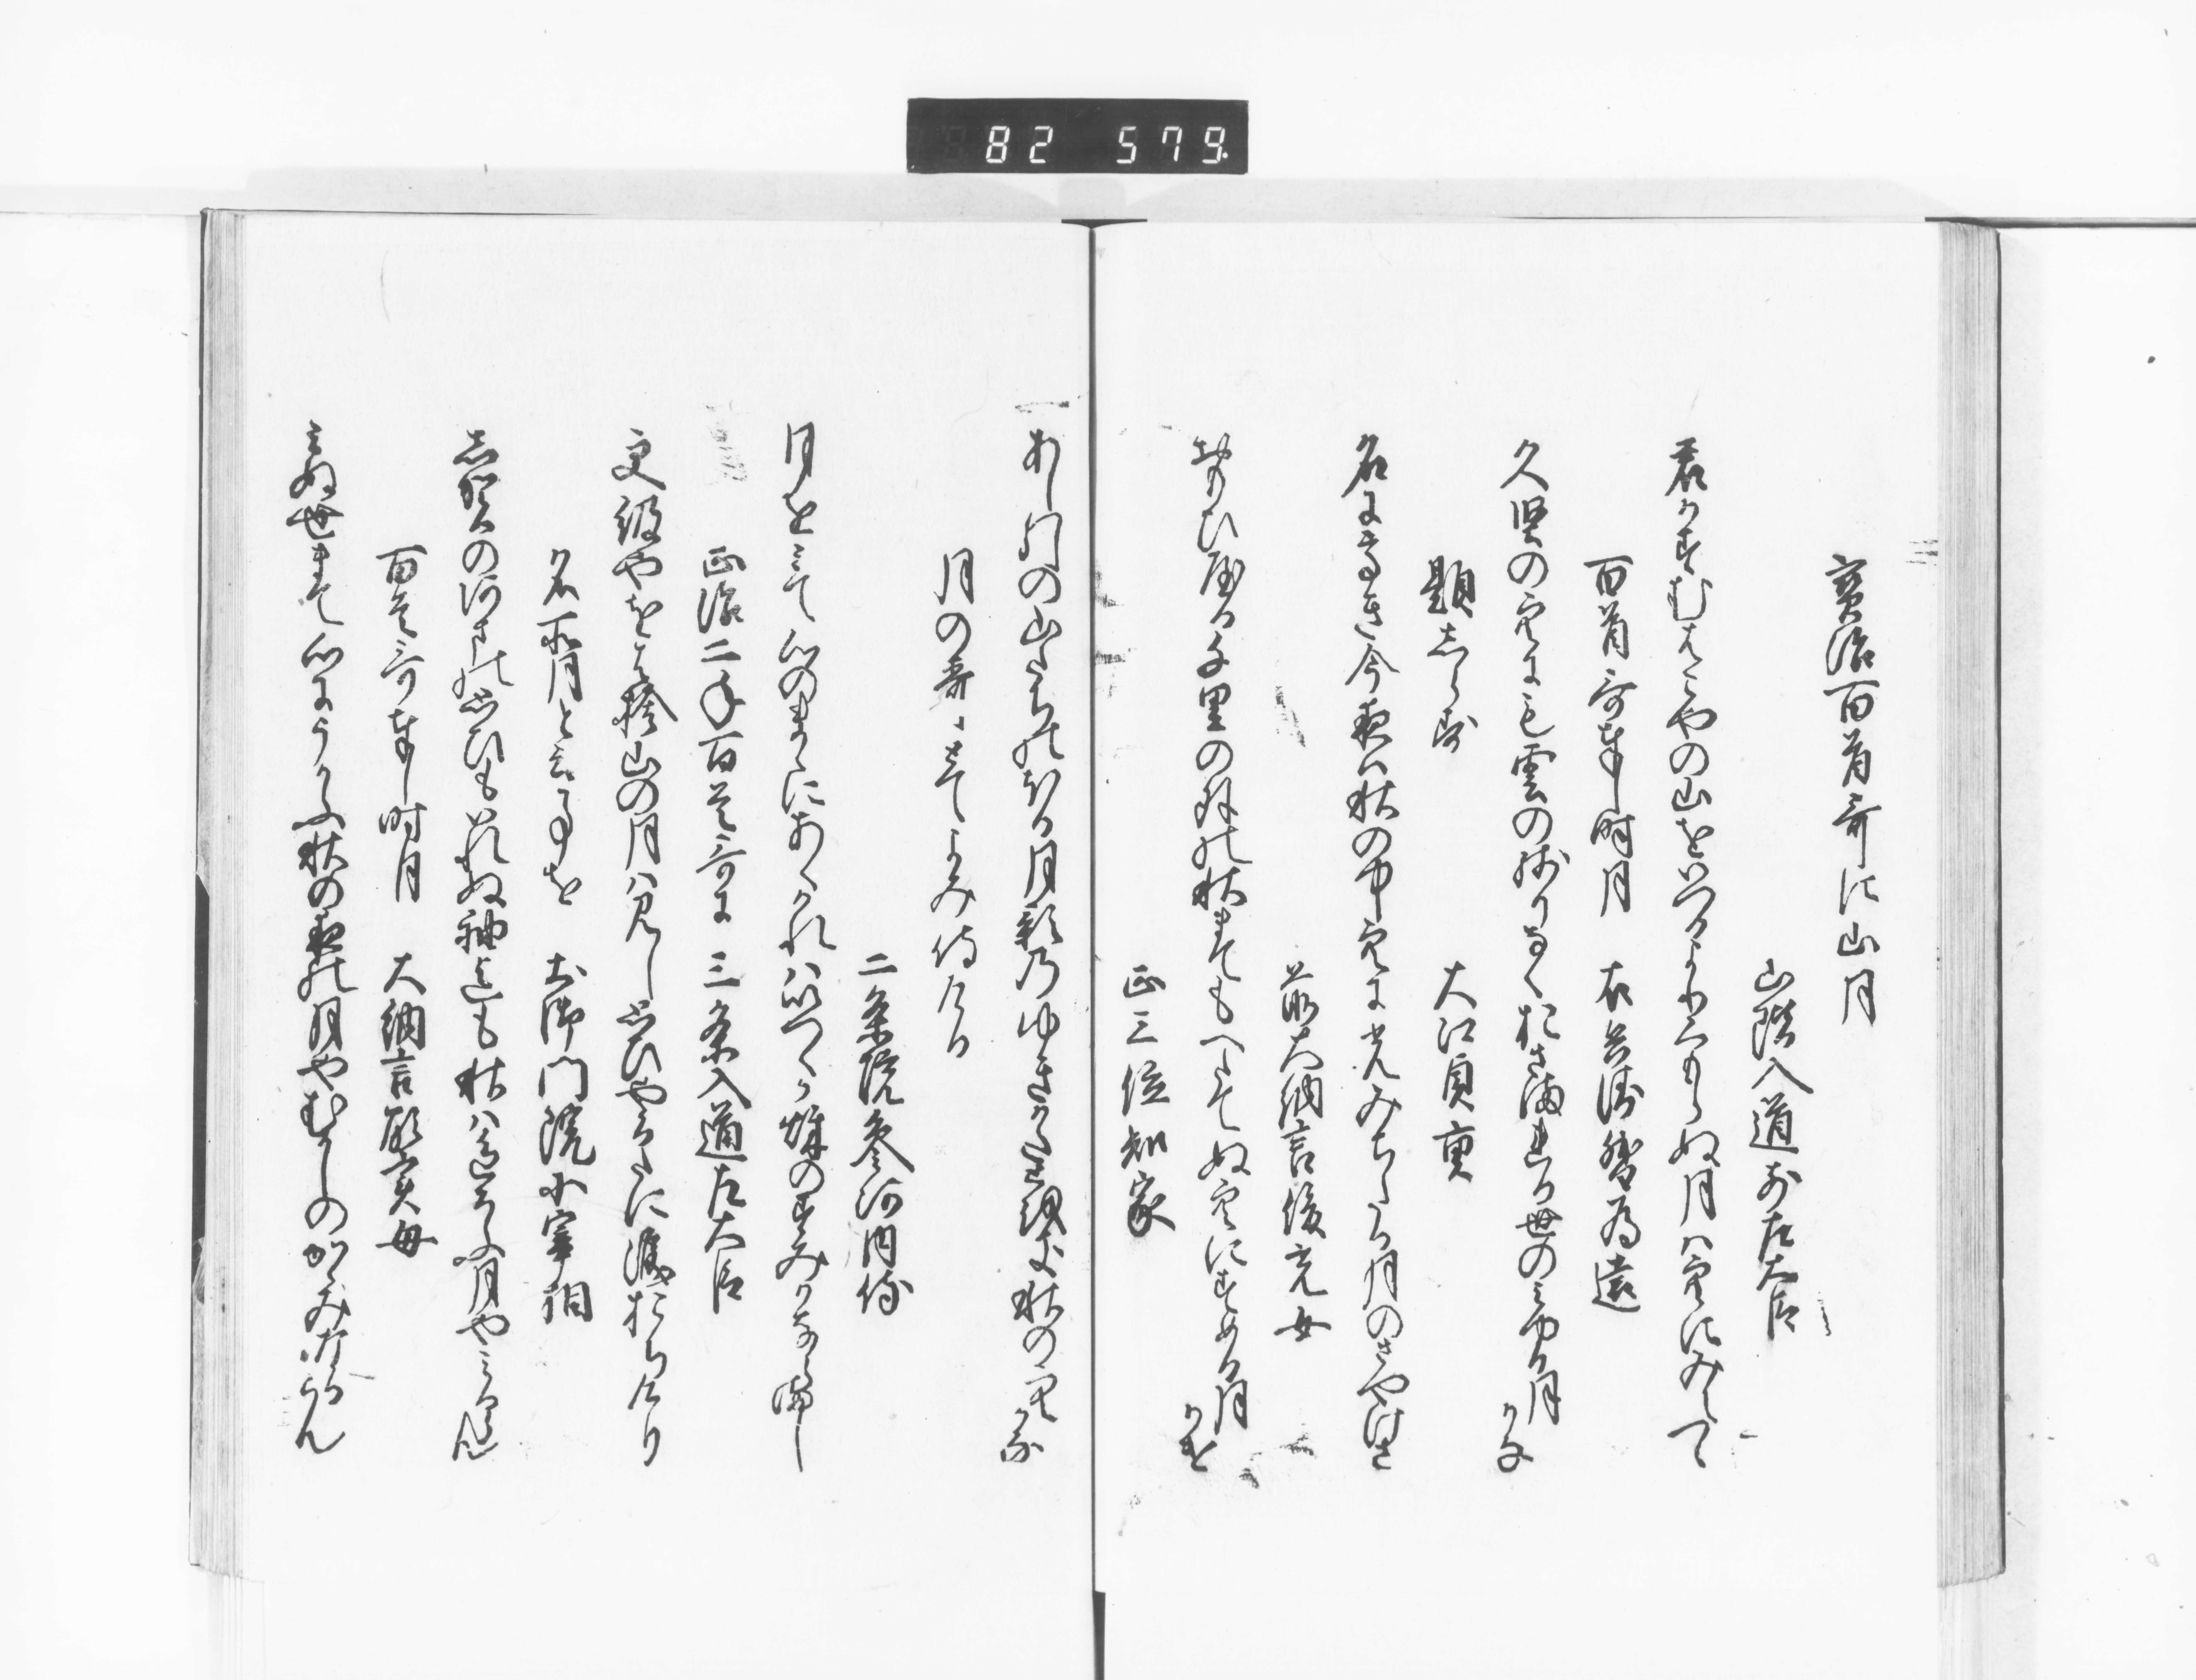 82 579
寳治百首哥に山月
山階入道前左大臣
君かすむはこやの山をいつるよりくもらぬ月は空にみえつゝ
百首哥奉し時月　右兵衛督為遠
久堅の空にも雲の残りなくおさまれる世のみゆる月かな
題しらす　大江貞重
名にたかき今夜は秋の中空に光みちたる月のさやけさ
前大納言俊光女
おもひやる千里の外の秋まてもへたてぬ空にすめる月かけ
正三位知家
あし引の山たちのほる月影のゆきかた
秋の空かな
月の哥とてよみ侍ける
二条院参河内侍
月をみて心のまゝにあくかれはいつくか
のすみかならまし
正治二年百首哥に　三条入道左大臣
更級やをはすて山の月は見し思ひやるたに涙おちけり
名所月と云事を　土御門院小宰相
志賀の
思ひも
れぬ袖
も秋は
月やみるらん
百首哥奉し時月　大納言顕実母
みぬ世まて心にうかふ秋の夜の月やむかしのかゝみなるらん